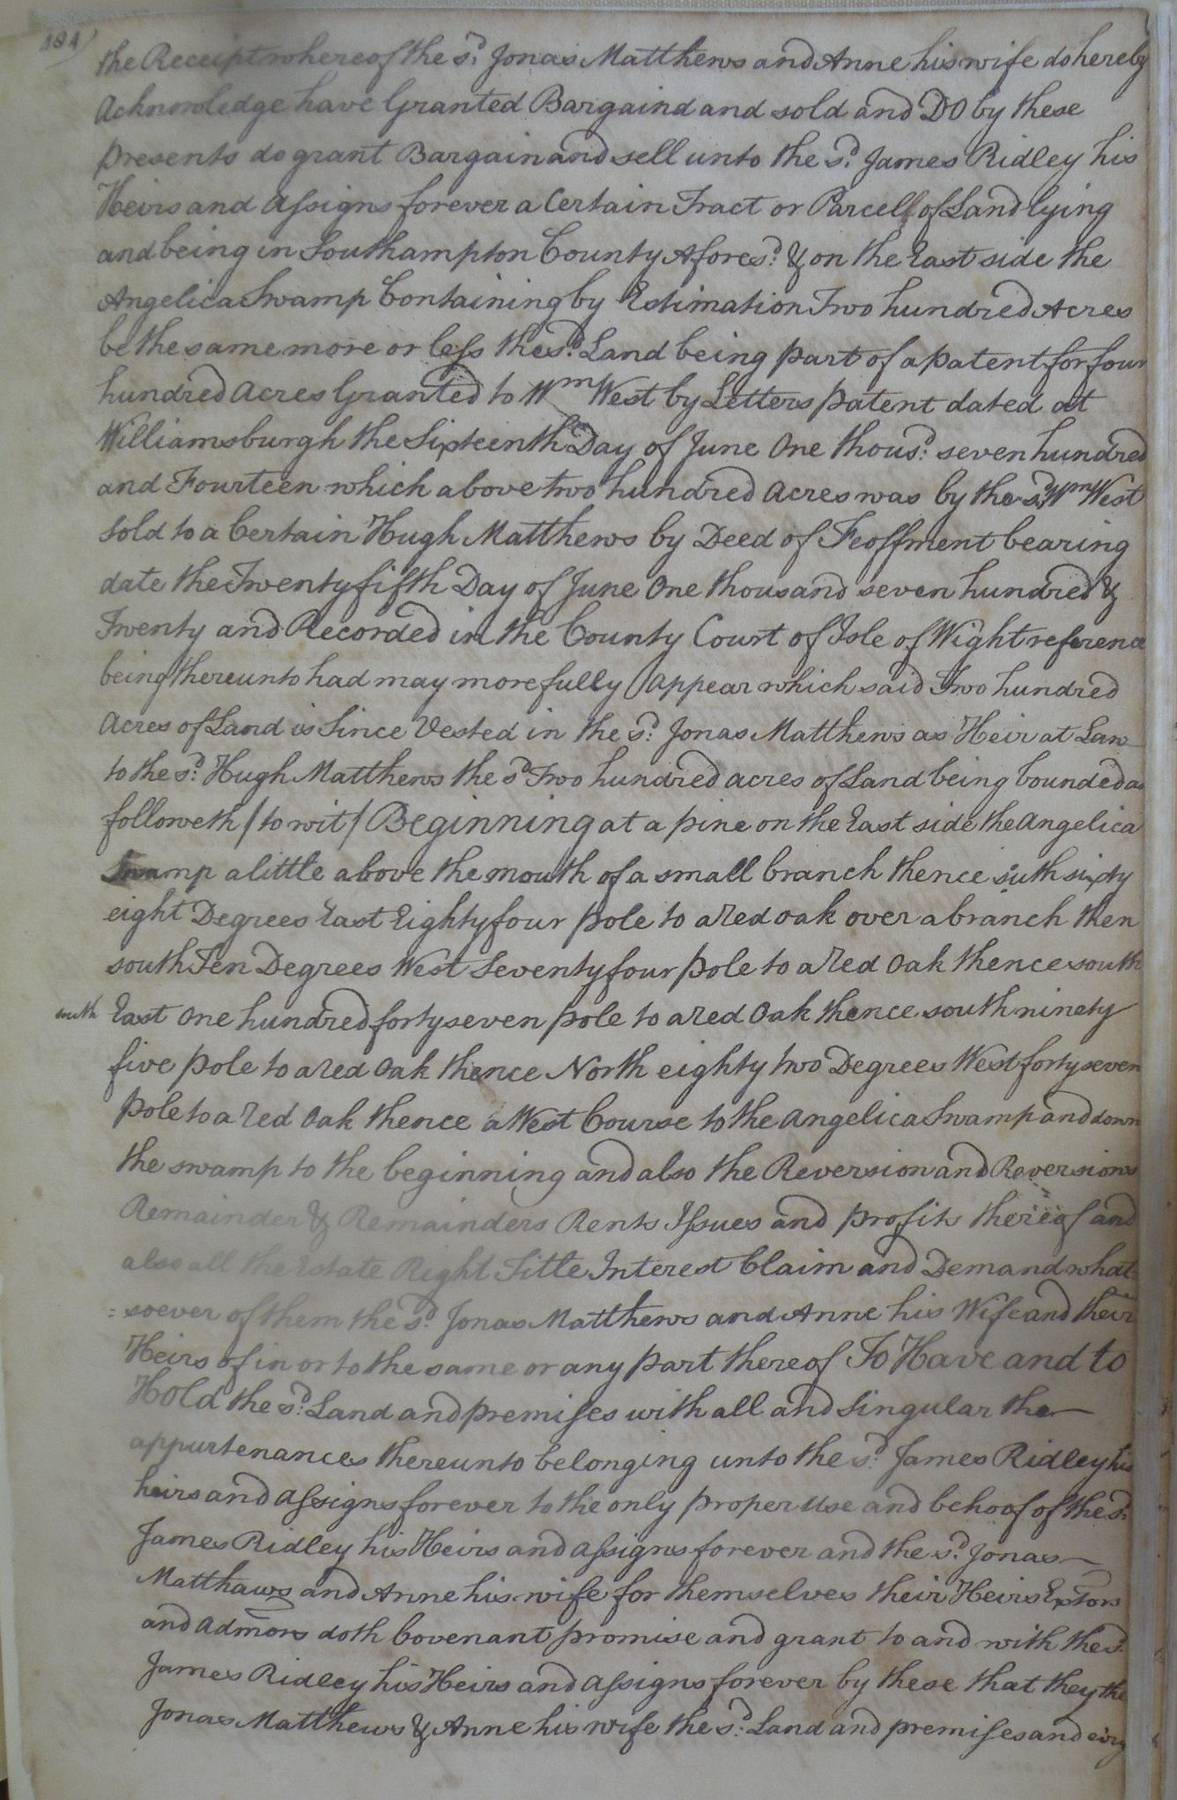 184)
the Receipt whereof the sd. Jonas Matthews and Anne his wife do hereby
Acknowledge have Granted Bargaind and sold and DO by these
presents do grant Bargain and sell unto the sd. James Ridley his
Heirs and Assigns forever a Certain Tract or Parcell of Land lying
and being in Southampton County Aforesd. & on the East side the
Angelica Swamp Containing by Estimation Two hundred Acres
be the same more or less the sd. Land being part of a patent for four
hundred Acres Granted to Wm West by Letters patent dated at
Williamsburgh the Sixteenth Day of June One thousd. seven hundred
and Fourteen which above two hundred Acres was by the sd. Wm West
sold to a Certain Hugh Matthews by Deed of Feoffment bearing
date the Twenty fifth Day of June One thousand seven hundred &
Twenty and Recorded in the County Court of Isle of Wight reference
being thereunto had may more fully Appear which said Two hundred
Acres of Land is Since Vested in the sd. Jonas Matthews as Heir at Law
to the sd. Hugh Matthews the sd Two hundred acres of Land being bounded as
followeth /to wit/ Beginning at a pine on the East side the Angelica
Swamp a little above the mouth of a small branch thence suth sixty
eight Degrees East Eighty four pole to a Red oak over a branch then
south Ten Degrees West Seventy four pole to a Red Oak thence south
south East One hundred forty seven pole to a Red Oak thence south ninety
five pole to a Red Oak thence North eighty two Degrees West forty seven
pole to a Red Oak thence a West Course to the Angelica Swamp and down
the swamp to the beginning and also the Reversion and Reversions
Remainder & Remainders Rents Issues and profits thereof and
also all the Estate Right Title Interest Claim and Demand what=
=soever of them the sd. Jonas Matthews and Anne his Wife and their
Heirs of in or to the same or any part thereof To Have and to
Hold the sd. Land and premises with all and Singular the
appurtenances thereunto belonging unto the sd. James Ridley his
heirs and Assigns forever to the only proper Use and behoof of the sd.
James Ridley his Heirs and Assigns forever and the sd. Jonas
Matthaws and Anne his wife for themselves their Heirs Extors
and Admors doth Covenant promise and grant to and with the sd.
James Ridley his Heirs and Assigns forever by these that they the
Jonas Matthews & Anne his wife the sd. Land and premises and evry